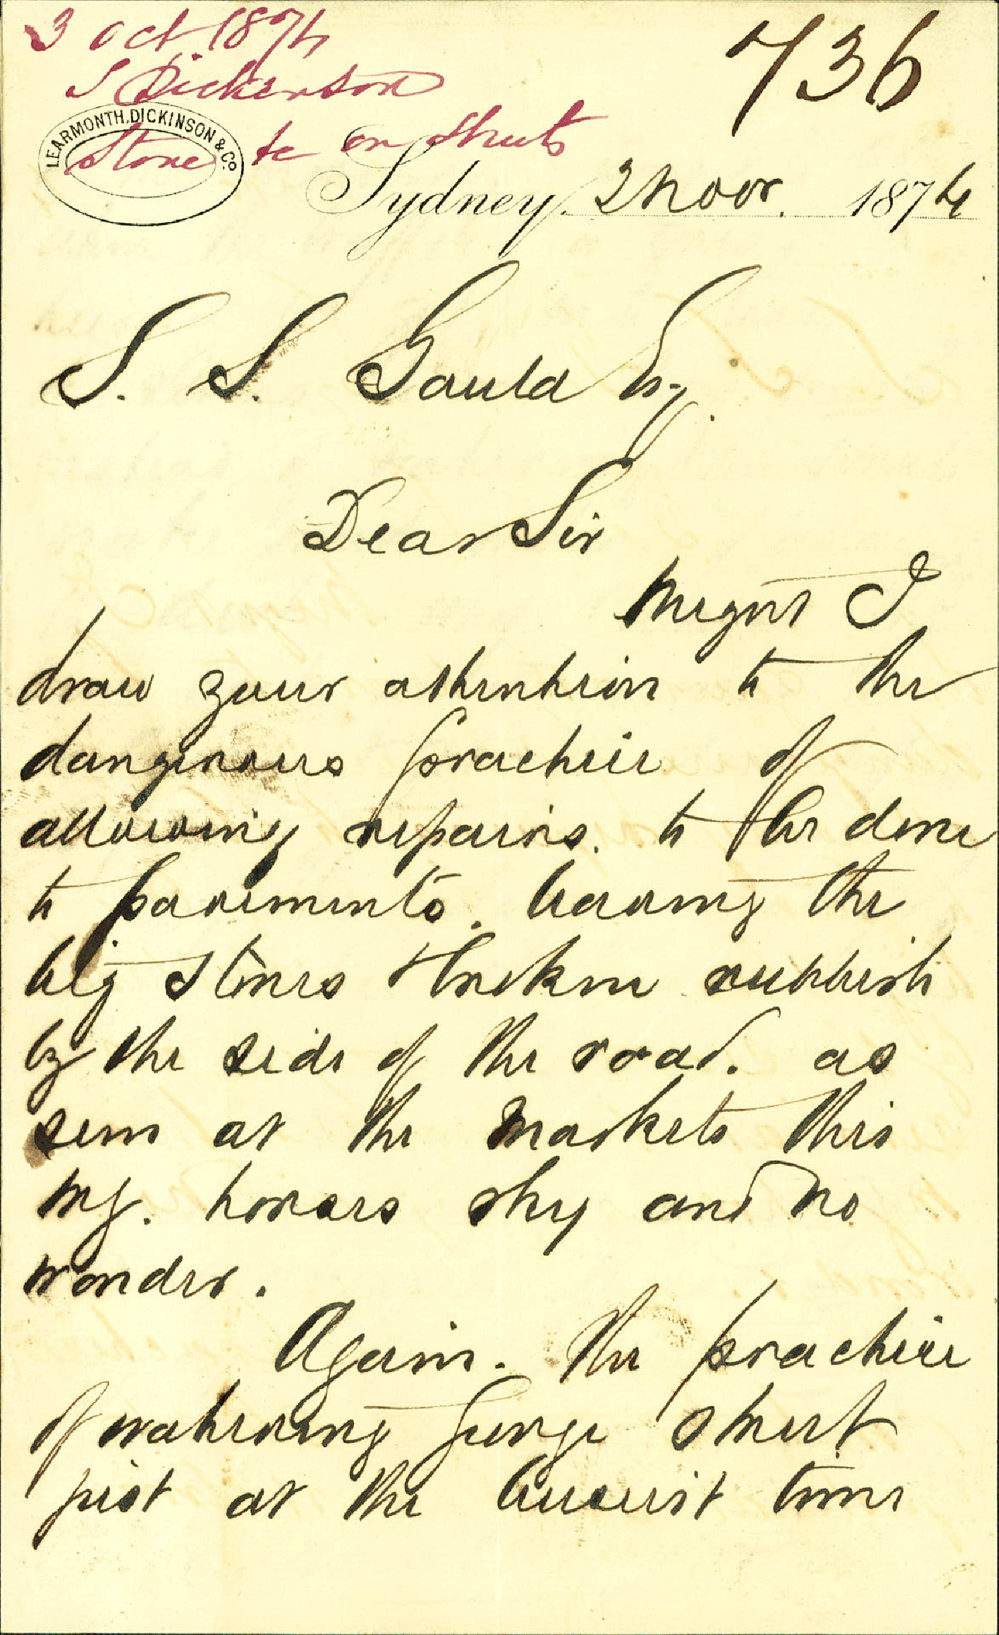 3 Oct 1874
736
J Dickenson
LEARMONTH, DICKINSON & Co
Stone &c on Streets
Sydney, 2 Novr. 1874
S. S. Gauld Esq.
Dear Sir
Might I
draw your attention to the
dangerous practice of
allowing repairs. to be done
to pavements. leaving the
big stones & broken rubbish
by the side of the road. as
seen at the Markets this
Mg. horses shy and no
wonder.
Again. the practice
of watering George Street
just at the busiest time